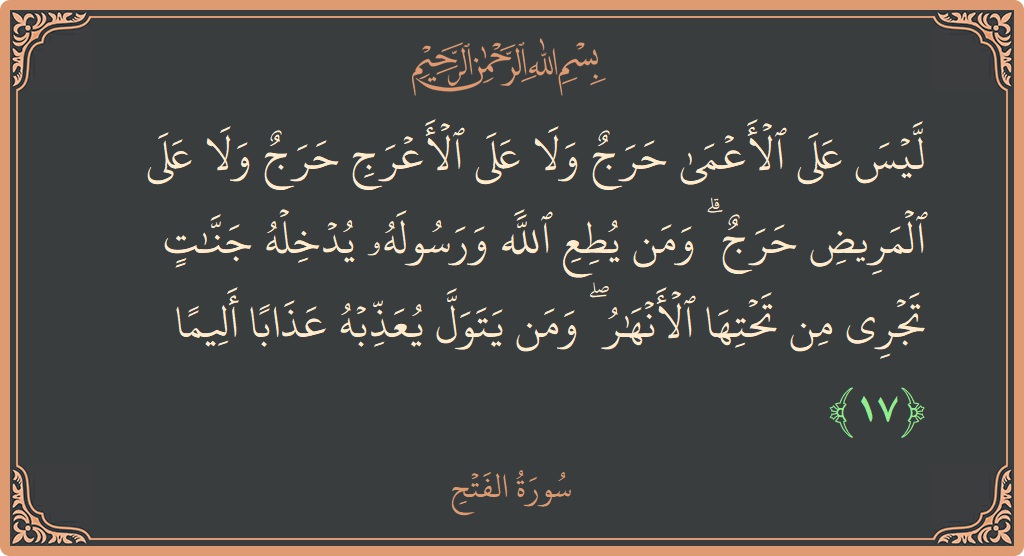 بِسْمِ اللهِ الرَّحْمٰنِ الرَّحِيْمِ
لَّيْسَ عَلَى ٱلْأَعْمَىٰ حَرَجٌ وَلَا عَلَى ٱلْأَعْرَجِ حَرَجٌ وَلَا عَلَى
ٱلْمَرِيضِ حَرَجٌ ۗ وَمَن يُطِعِ ٱللَّه وَرَسُولَهُۥ يُدْخِلْهُ جَنَّـٰتٍ
تَجْرِى مِن تَحْتِهَا ٱلْأَنْهَـٰرُ ۖ وَمَن يَتَوَلَّ يُعَذِّبْهُ عَذَابًا أَلِيمًا
﴿١٧﴾
سُورَةُ الفَتْحِ